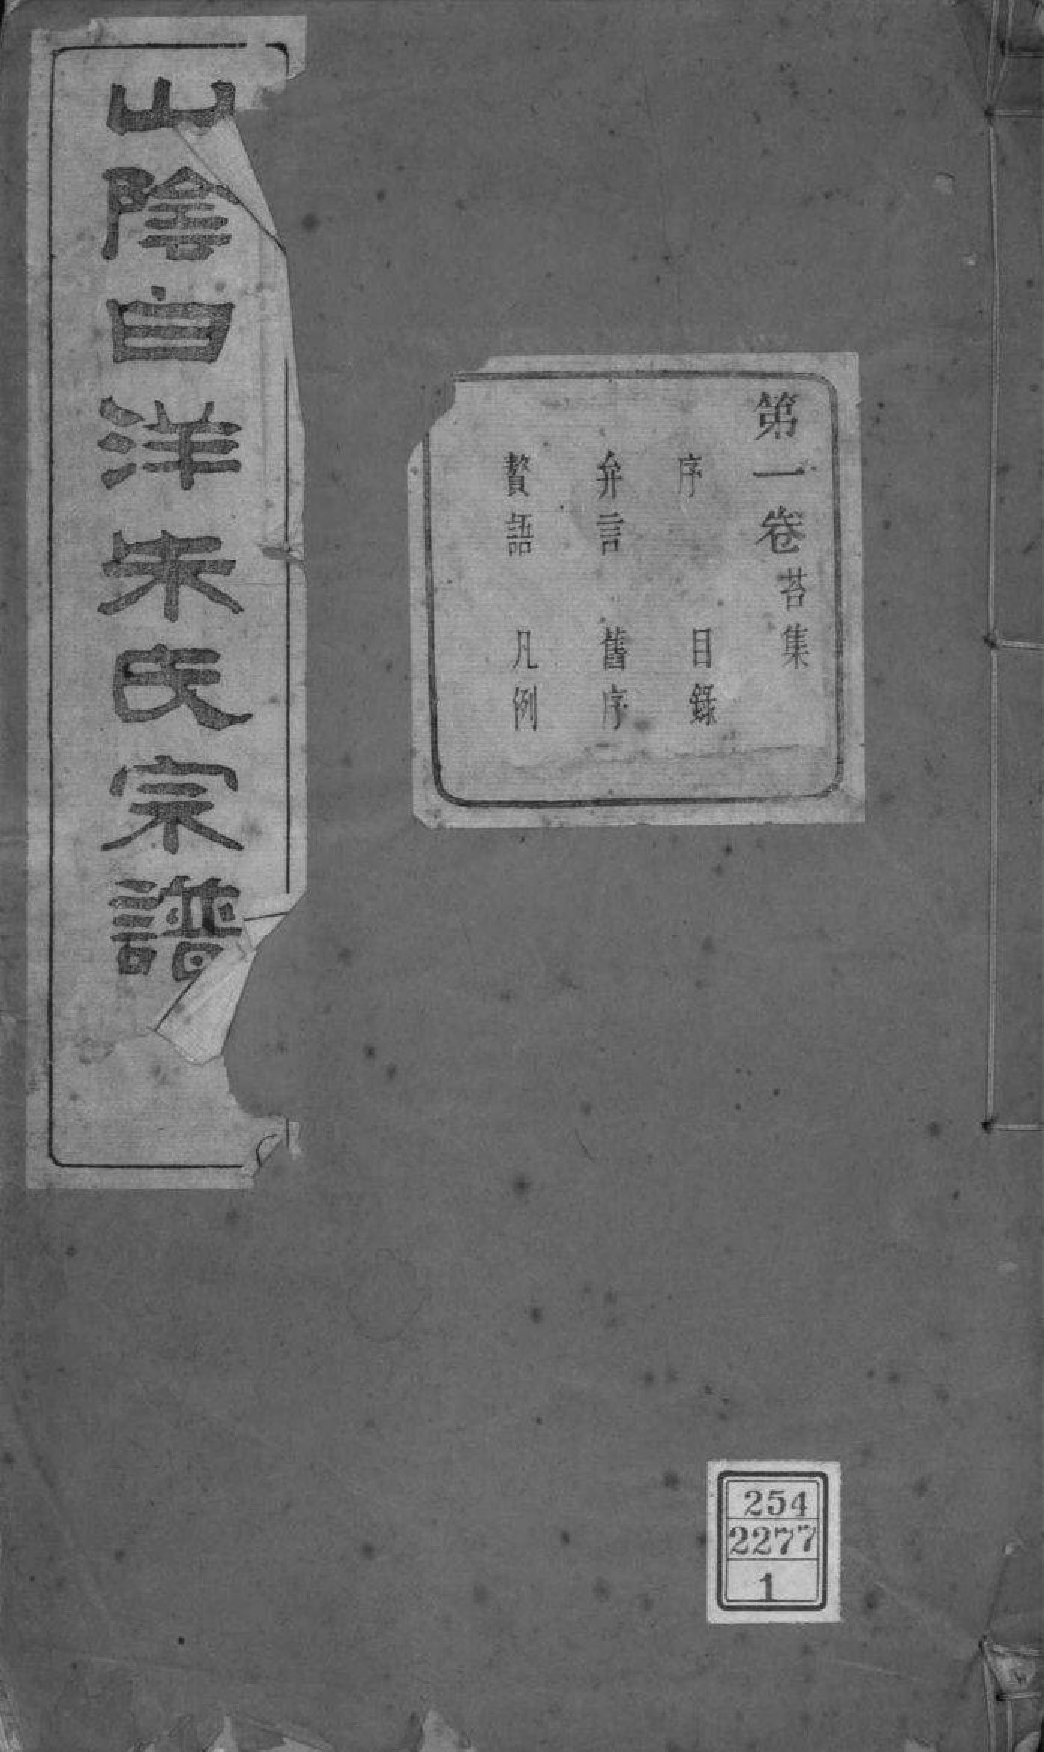 山陰白洋朱氏宗譜
第一卷 苔集
序 目錄
弁言 舊序
贅語 凡例
254
2277
1